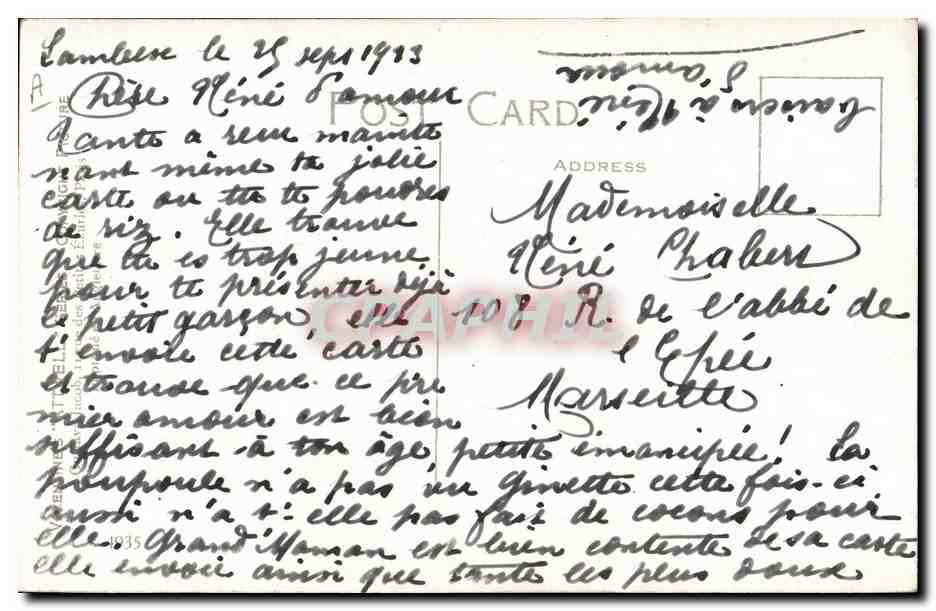 Lambesc le 25 sept 1913
Chère Néné d'amour
Tante a reçu mainte
nant même ta jolie
carte ou tu te poudres
de riz. Elle trouve
que tu es trop jeune
pour te présenter déjà
le petit garçon, elle
t'envoie cette carte
et trouve que ce pre
mier amour est bien
suffisant à ton âge, petite émancipée! La
poupoule n'a pas vu Ginette cette fois-ci
aussi n'a t-elle pas fait de cocons pour
elle. Grand'Maman est bien contente de sa carte
elle envoie ainsi que tante les plus doux
baisers à Néné
d'amour
POST CARD
ADDRESS
Mademoiselle
Néné Chabert
108 R. de l'abbé de
l'Epée
Marseille
CPAPHIL
1935